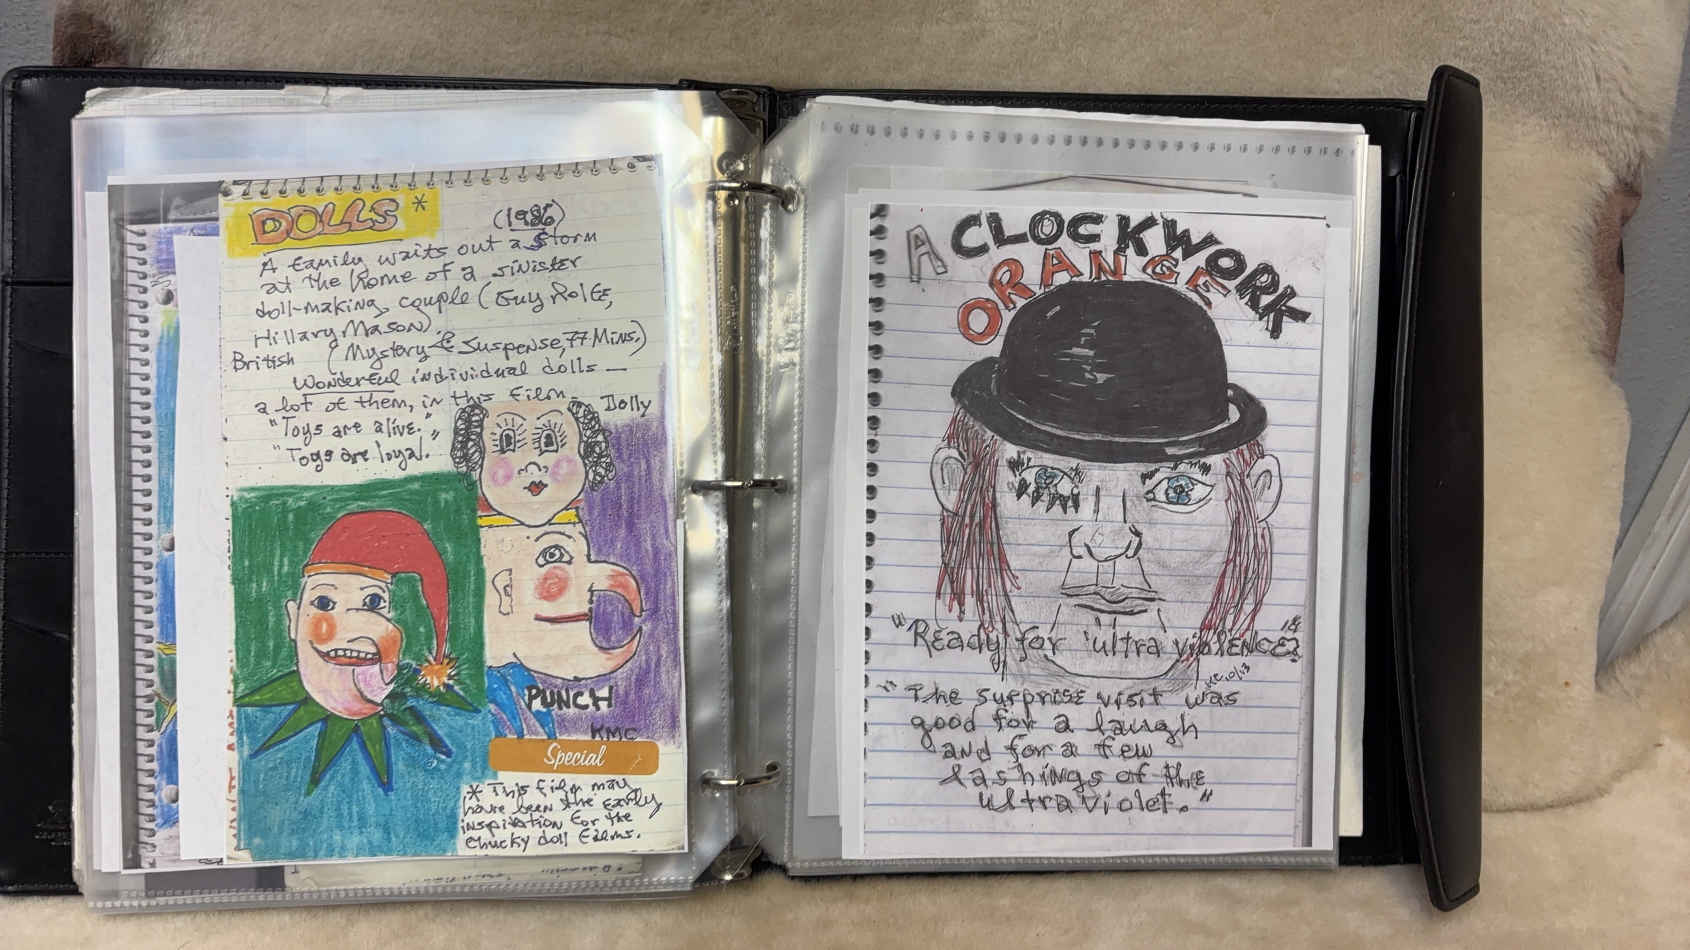 DOLLS *
(1986)
A family waits out a storm
at the home of a sinister
doll-making couple (Guy Rolfe,
Hillary Mason).
British (Mystery & Suspense, 77 Mins.)
Wonderful individual dolls —
a lot of them, in this film.
"Toys are alive."
"Toys are loyal."
Dolly
PUNCH
KMC
Special
* This film may
have been the early
inspiration for the
Chucky doll films.
A CLOCKWORK
ORANGE
"Ready for 'ultra violence?'"
KC 10/13
"The surprise visit was
good for a laugh
and for a few
lashings of the
ultraviolet."